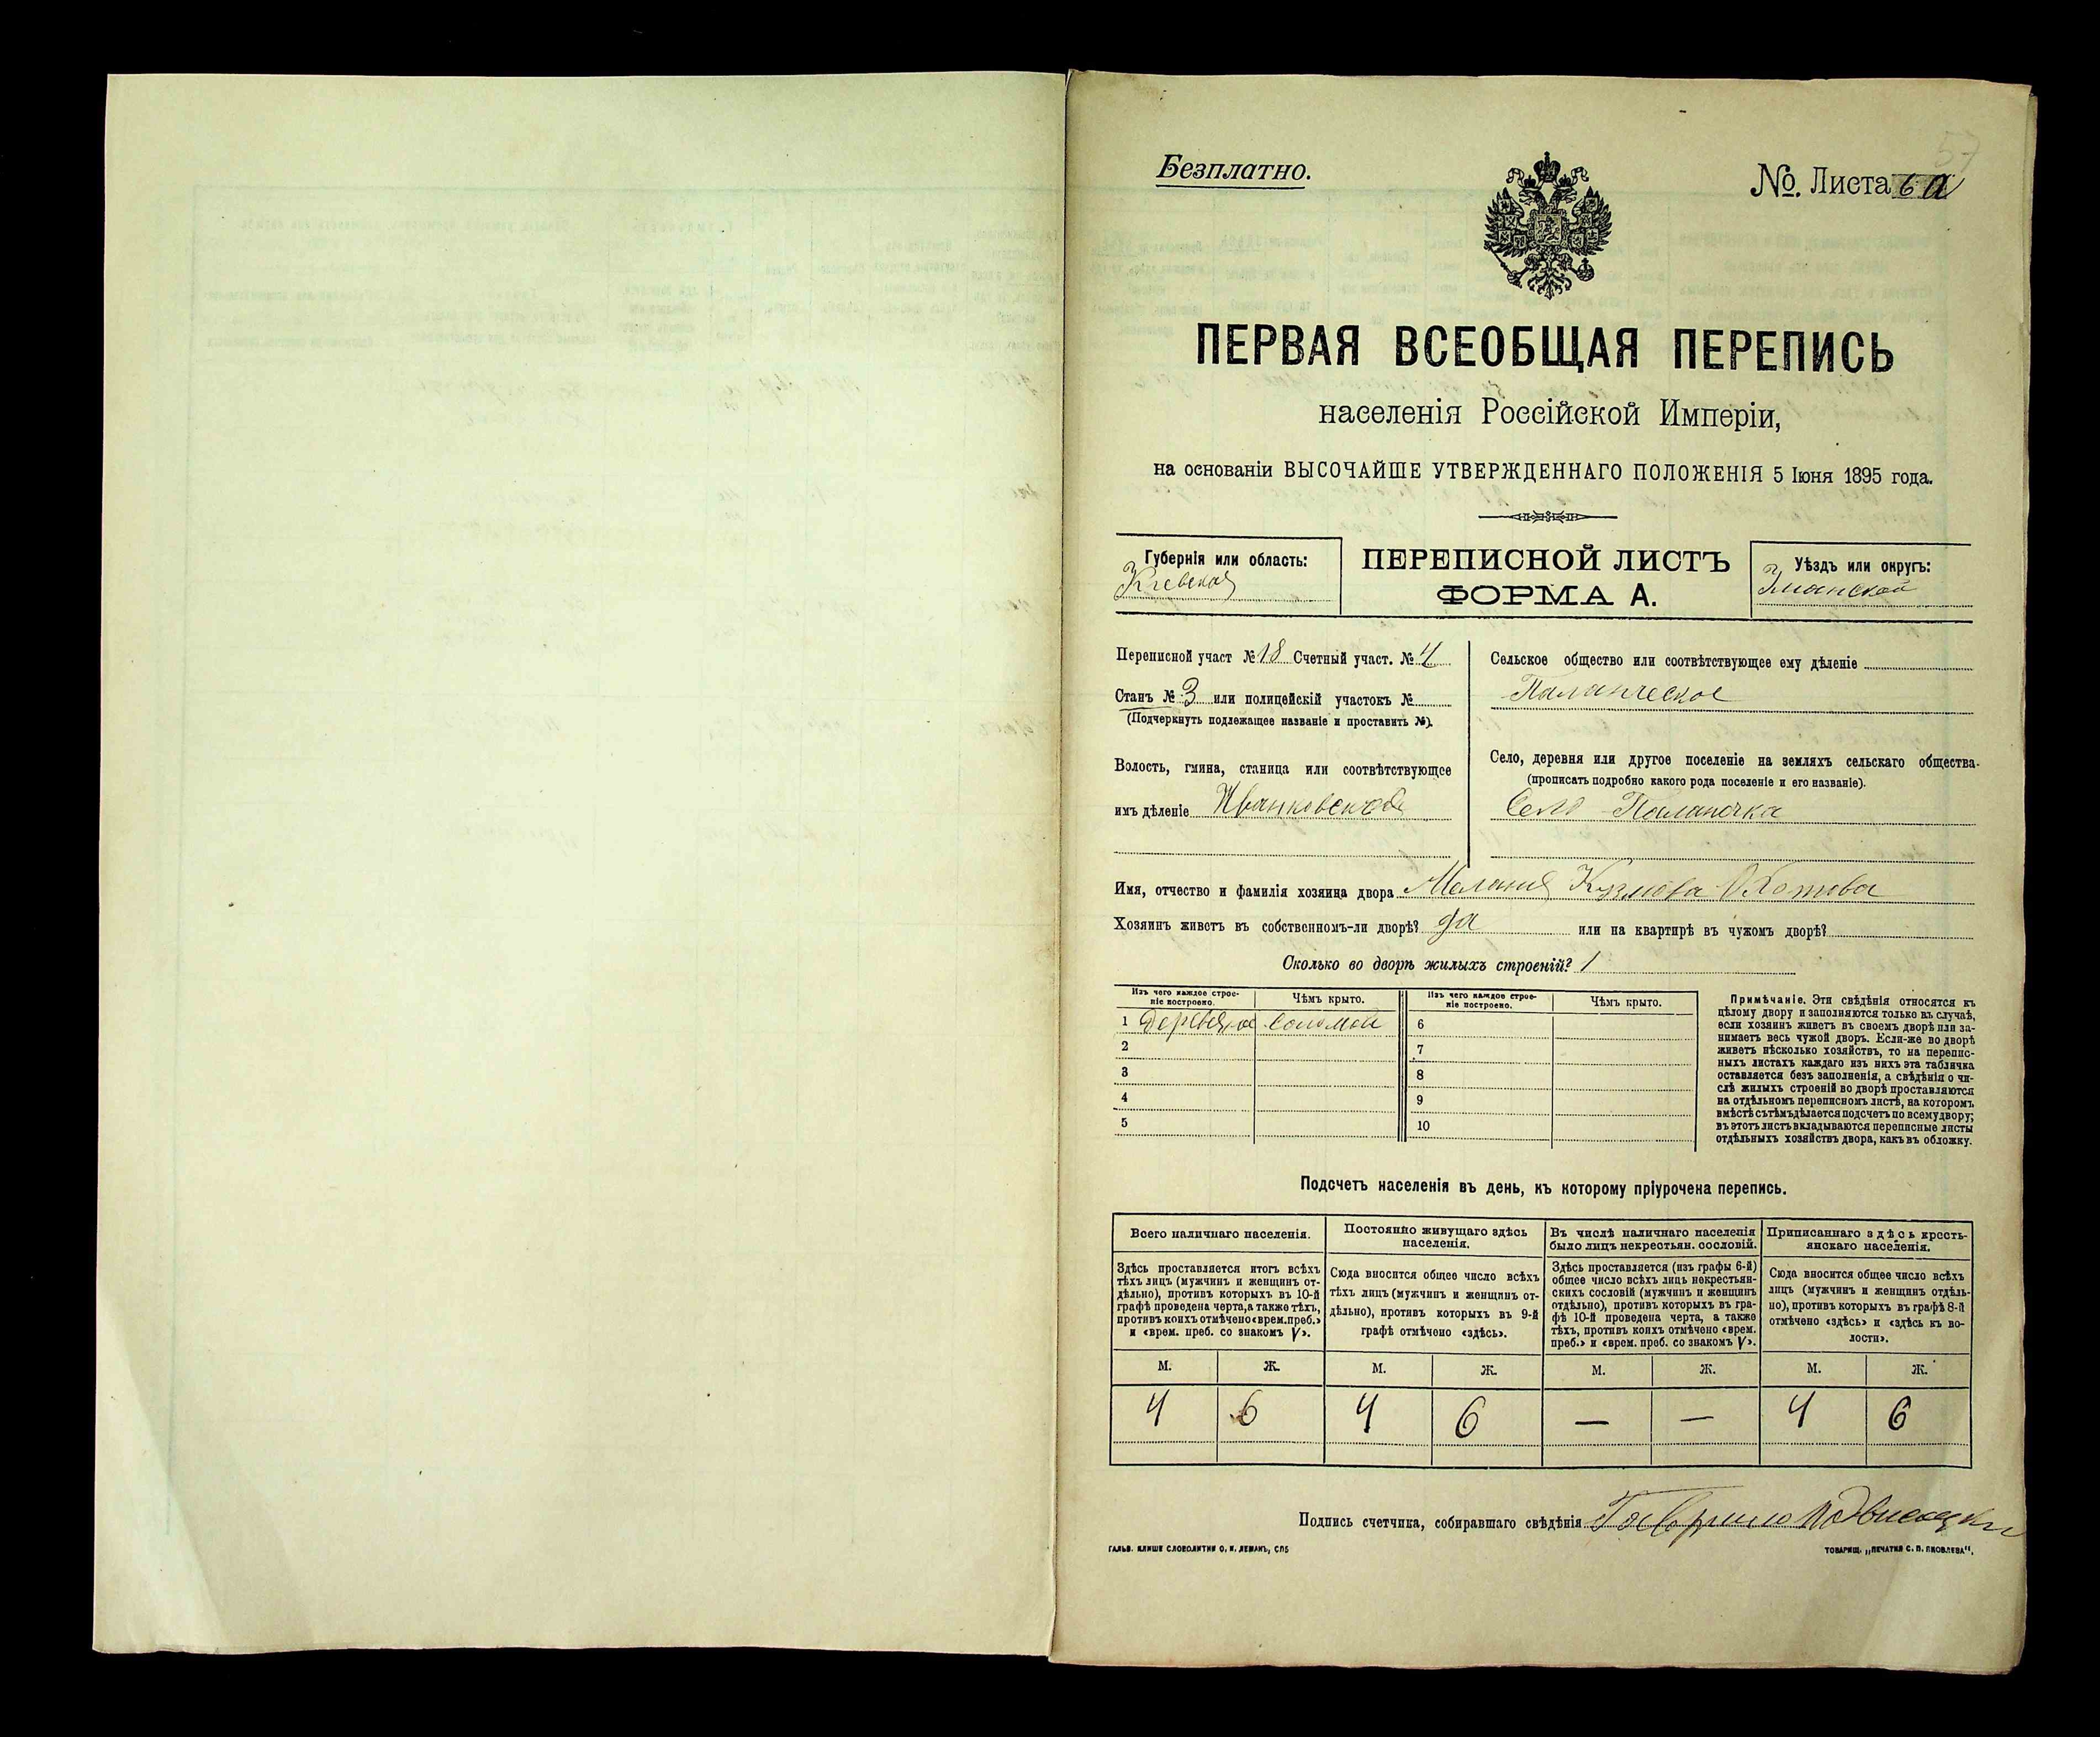 57
Безплатно.
№. Листа 6 а
ПЕРВАЯ ВСЕОБЩАЯ ПЕРЕПИСЬ
населенія Россійской Имперіи,
на основаніи ВЫСОЧАЙШЕ УТВЕРЖДЕННАГО ПОЛОЖЕНІЯ 5 Іюня 1895 года.
Губернія или область:
Кіевская
ПЕРЕПИСНОЙ ЛИСТЪ
ФОРМА А.
Уѣздъ или округъ:
Уманской
Переписной участ № 18 Счетный участ. № 4
Станъ № 3 или полицейскій участокъ №
(Подчеркнуть подлежащее названіе и проставить №).
Волость, гмина, станица или соотвѣтствующее
имъ дѣленіе Иванковская
Сельское общество или соотвѣтствующее ему дѣленіе
Паланческое
Село, деревня или другое поселеніе на земляхъ сельскаго общества.
(прописать подробно какого рода поселеніе и его названіе).
Село Паланочка
Имя, отчество и фамилія хозяина двора Маланія Кузмова
Хозяинъ живетъ въ собственномъ-ли дворѣ? да или на квартирѣ въ чужомъ дворѣ?
Сколько во дворѣ жилыхъ строеній? 1
Изъ чего каждое строе-
ніе построено.
Чѣмъ крыто.
Изъ чего каждое строе-
ніе построено.
Чѣмъ крыто.
1 соломой 6
2 7
3 8
4 9
5 10
Примѣчаніе. Эти свѣдѣнія относятся къ
цѣлому двору и заполняются только въ случаѣ,
если хозяинъ живетъ въ своемъ дворѣ или за-
нимаетъ весь чужой дворъ. Если-же во дворѣ
живетъ нѣсколько хозяйствъ, то на перепис-
ныхъ листахъ каждаго изъ нихъ эта табличка
оставляется безъ заполненія, а свѣдѣнія о чи-
слѣ жилыхъ строеній во дворѣ проставляются
на отдѣльномъ переписномъ листѣ, на которомъ
вмѣстѣ съ тѣмъ дѣлается подсчетъ по всему двору;
въ этотъ листъ вкладываются переписные листы
отдѣльныхъ хозяйствъ двора, какъ въ обложку.
Подсчетъ населенія въ день, къ которому пріурочена перепись.
Всего наличнаго населенія.
Здѣсь проставляется итогъ всѣхъ
тѣхъ лицъ (мужчинъ и женщинъ от-
дѣльно), противъ которыхъ въ 10-й
графѣ проведена черта, а также тѣхъ,
противъ коихъ отмѣчено «врем. преб.»
и «врем. преб. со знакомъ V».
Постоянно живущаго здѣсь
населенія.
Сюда вносится общее число всѣхъ
тѣхъ лицъ (мужчинъ и женщинъ от-
дѣльно), противъ которыхъ въ 9-й
графѣ отмѣчено «здѣсь».
Въ числѣ наличнаго населенія
было лицъ некрестьян. сословій.
Здѣсь проставляется (изъ графы 6-й)
общее число всѣхъ лицъ некрестьян-
скихъ сословій (мужчинъ и женщинъ
отдѣльно), противъ которыхъ въ гра-
фѣ 10-й проведена черта, а также
тѣхъ, противъ коихъ отмѣчено «врем.
преб.» и «врем. преб. со знакомъ V».
Приписаннаго здѣсь кресть-
янскаго населенія.
Сюда вносится общее число всѣхъ
лицъ (мужчинъ и женщинъ отдѣль-
но), противъ которыхъ въ графѣ 8-й
отмѣчено «здѣсь» и «здѣсь къ во-
лости».
М. Ж. М. Ж. М. Ж. М. Ж.
4 6 4 6 — — 4 6
Подпись счетчика, собиравшаго свѣдѣнія Гаврило
ГАЛЬВ. КЛИШЕ СЛОВОЛИТНИ О. И. ЛЕМАНЪ, СПБ
ТОВАРИЩ. „ПЕЧАТНЯ С. П. ЯКОВЛЕВА“.